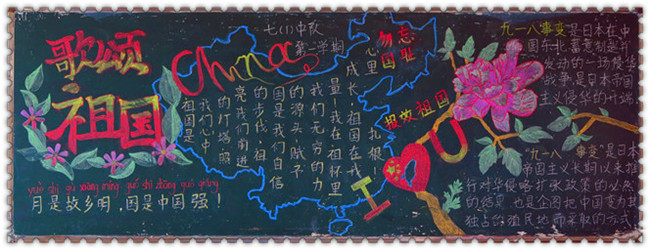 歌颂
祖国
yuè shì gù xiāng míng guó shì zhōng guó qiáng
月是故乡明,国是中国强!
China
七(1)中队
第一学期
祖国是
我们心中
的灯塔照
亮我们前进
的步伐,祖
国是我们自信
的源头,赋予
我们无穷的力
量!我在祖怀里
成长,祖国在我
心里扎根
勿忘
国耻
报效祖国
I U
九一八事变是日本在中
国东北蓄意制造并
发动的一场侵华
战争是日本帝国
主义侵华的开端.
"九一八事变"是日本
帝国主义长期以来推
行对华侵略扩张政策的必然
的结果 也是企图把中国变为其
独占的殖民地而采取的方式